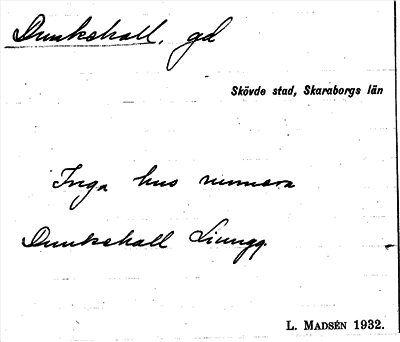 Dunkehall, gd
Skövde stad, Skaraborgs län
Inga hus numera
Dunkehall
L. MADSÉN 1932.